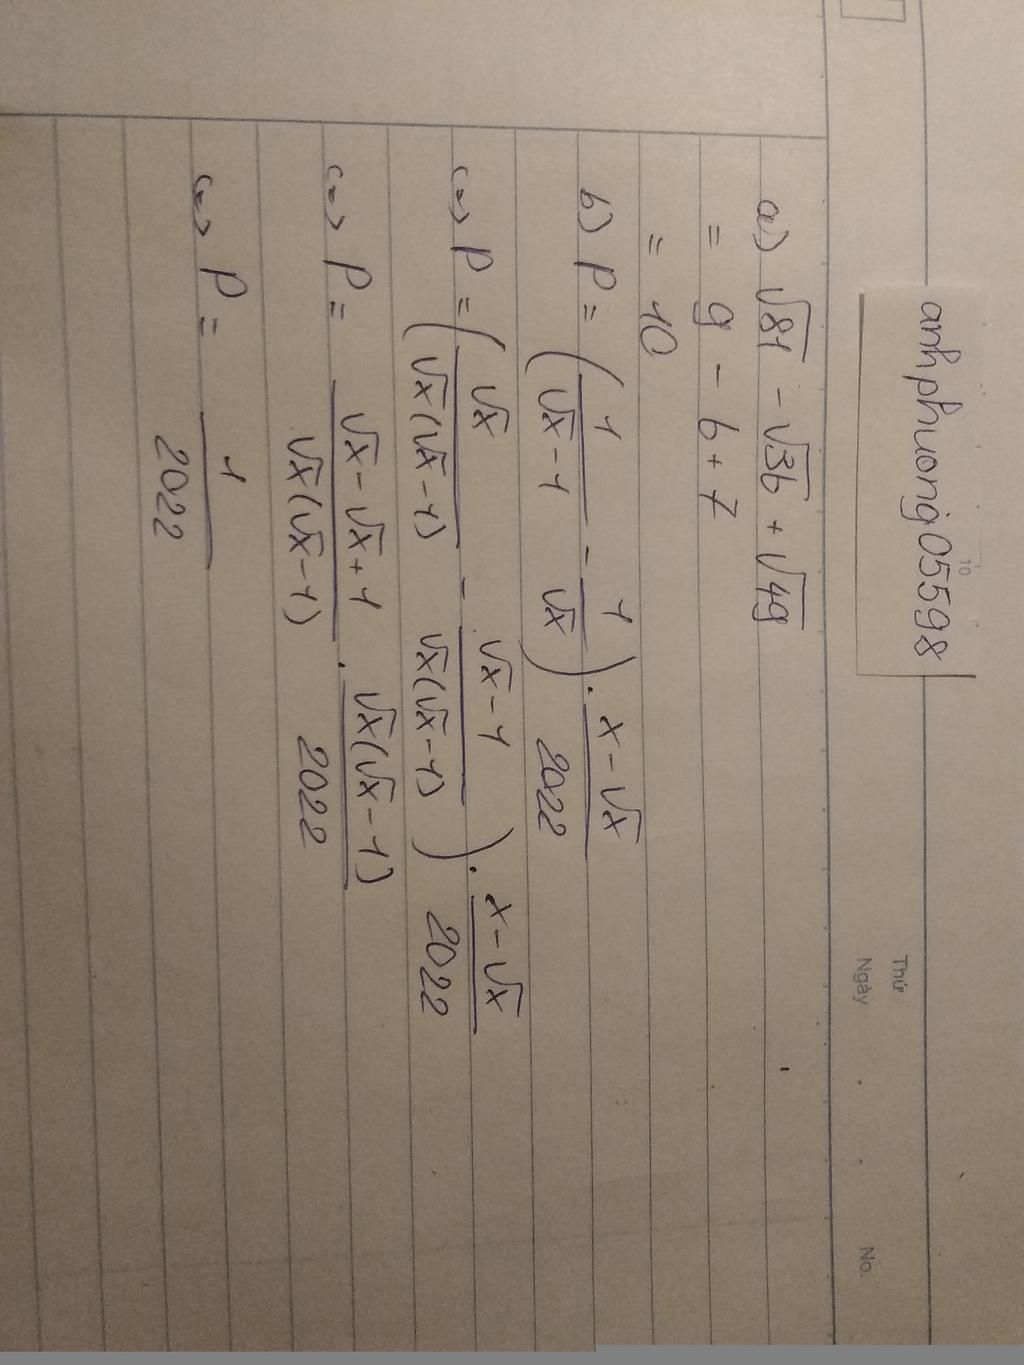 anhphuong05598
10
Thứ
Ngày
No.
a) √81 - √36 + √49
= 9 - 6 + 7
= 10
b) P = (1/(√x - 1) - 1/√x) . (x - √x)/2022
<=> P = (√x/(√x(√x - 1)) - (√x - 1)/(√x(√x - 1))) . (x - √x)/2022
<=> P = (√x - √x + 1)/(√x(√x - 1)) . (√x(√x - 1))/2022
<=> P = 1/2022